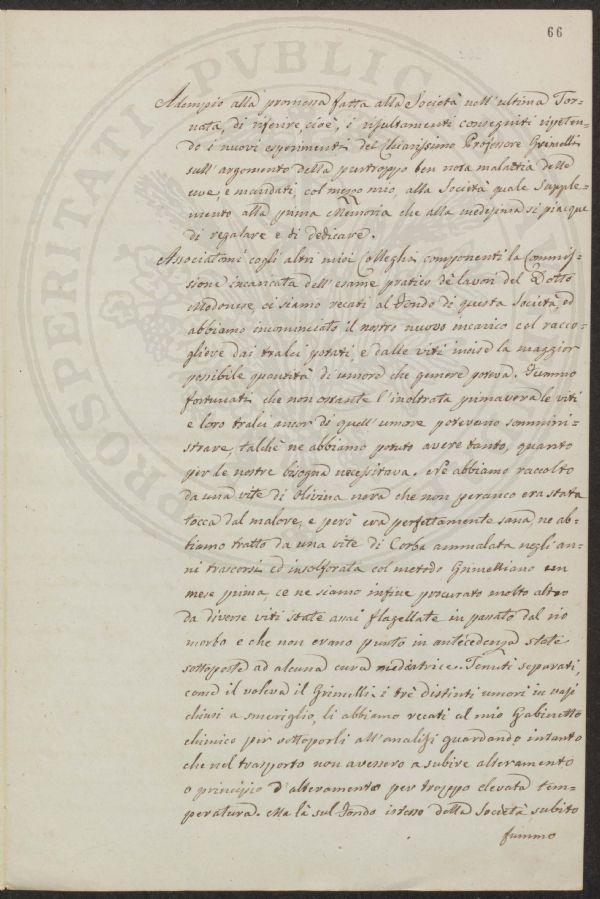 66
Adempio alla promessa fatta alla Società nell'ultima Tor=
nata, di riferire, cioè, i risultamenti conseguiti ripeten=
do i nuovi esperimenti del Chiarissimo Professore Grimelli
sull'argomento della purtroppo ben nota malattia delle
uve, e mandati, col mezzo mio, alla Società quale Supple=
mento alla prima Memoria che alla medesima si piacque
di regalare e di dedicare.
Associatomi cogli altri miei Colleghi componenti la Commis=
sione incaricata dell'esame pratico de' lavori del Dotto
Modonese, ci siamo recati al fondo di questa Società, ed
abbiamo incominciato il nostro nuovo incarico col racco=
gliere dai tralci potati, e dalle viti incise la maggior
possibile quantità di umore che gemere poteva. Fummo
fortunati che non ostante l'inoltrata primavera le viti
e loro tralci ancor di quell'umore potevano sommini=
strare, talchè ne abbiamo potuto avere tanto, quanto
per le nostre bisogna necessitava. Ne abbiamo raccolto
da una vite di Olivina nera che non peranco era stata
tocca dal malore, e però era perfettamente sana, ne ab=
biamo tratto da una vite di Corba ammalata negli an=
ni trascorsi ed insolforata col metodo Grimelliano un
mese prima, e ce ne siamo infine procurato molto altro
da diverse viti state assai flagellate in passato dal rio
morbo e che non erano punto in antecedenza state
sottoposte ad alcuna cura medicatrice. Tenuti separati,
come il voleva il Grimelli i trè distinti umori in vasi
chiusi a smeriglio, li abbiamo recati al mio Gabinetto
chimico per sottoporli all'analisi guardando intanto
che nel trasporto non avessero a subire alteramento
o principio d'alteramento per troppo elevata tem=
peratura. Ma là sul fondo istesso della Società subito
fummo
PROSPERITATI PVBLIC